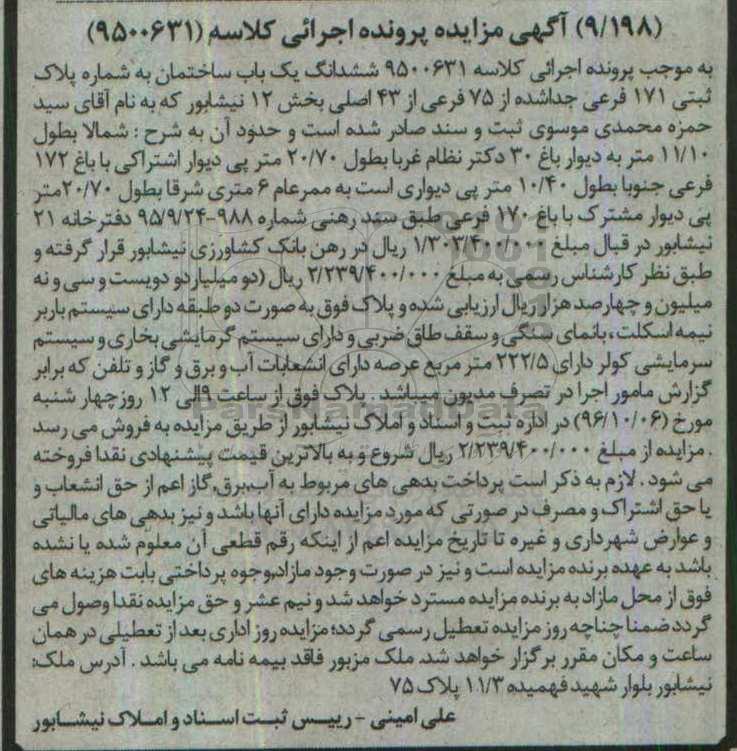 (۹/۱۹۸) آگهی مزایده پرونده اجرائی کلاسه (۹۵۰۰۶۳۱)
به موجب پرونده اجرائی کلاسه ۹۵۰۰۶۳۱ ششدانگ یک باب ساختمان به شماره پلاک
ثبتی ۱۷۱ فرعی جداشده از ۷۵ فرعی از ۴۳ اصلی بخش ۱۲ نیشابور که به نام آقای سید
حمزه محمدی موسوی ثبت و سند صادر شده است و حدود آن به شرح : شمالا بطول
۱۱/۱۰ متر به دیوار باغ ۳۰ دکتر نظام غربا بطول ۲۰/۷۰ متر پی دیوار اشتراکی با باغ ۱۷۲
فرعی جنوبا بطول ۱۰/۴۰ متر پی دیواری است به ممرعام ۶ متری شرقا بطول ۲۰/۷۰متر
پی دیوار مشترک با باغ ۱۷۰ فرعی طبق سند رهنی شماره ۹۸۸-۹۵/۹/۲۴ دفترخانه ۲۱
نیشابور در قبال مبلغ ۱/۳۰۳/۴۰۰/۰۰۰ ریال در رهن بانک کشاورزی نیشابور قرار گرفته و
طبق نظر کارشناس رسمی به مبلغ ۲/۲۳۹/۴۰۰/۰۰۰ ریال (دو میلیاردو دویست و سی و نه
میلیون و چهارصد هزار ریال ارزیابی شده و پلاک فوق به صورت دو طبقه دارای سیستم باربر
نیمه اسکلت، بانمای سنگی و سقف طاق ضربی و دارای سیستم گرمایشی بخاری و سیستم
سرمایشی کولر دارای ۲۲۲/۵ متر مربع عرصه دارای انشعابات آب و برق و گاز و تلفن که برابر
گزارش مامور اجرا در تصرف مدیون میباشد . پلاک فوق از ساعت ۹الی ۱۲ روزچهار شنبه
مورخ (۹۶/۱۰/۰۶) در اداره ثبت و اسناد و املاک نیشابور از طریق مزایده به فروش می رسد
. مزایده از مبلغ ۲/۲۳۹/۴۰۰/۰۰۰ ریال شروع و به بالاترین قیمت پیشنهادی نقدا فروخته
می شود . لازم به ذکر است پرداخت بدهی های مربوط به آب،برق،گاز اعم از حق انشعاب و
یا حق اشتراک و مصرف در صورتی که مورد مزایده دارای آنها باشد و نیز بدهی های مالیاتی
و عوارض شهرداری و غیره تا تاریخ مزایده اعم از اینکه رقم قطعی آن معلوم شده یا نشده
باشد به عهده برنده مزایده است و نیز در صورت وجود مازاد،وجوه پرداختی بابت هزینه های
فوق از محل مازاد به برنده مزایده مسترد خواهد شد و نیم عشر و حق مزایده نقدا وصول می
گردد ضمنا چناچه روز مزایده تعطیل رسمی گردد؛ مزایده روز اداری بعد از تعطیلی در همان
ساعت و مکان مقرر برگزار خواهد شد. ملک مزبور فاقد بیمه نامه می باشد . آدرس ملک:
نیشابور بلوار شهید فهمیده ۱۱/۳ پلاک ۷۵
علی امینی - رییس ثبت اسناد و املاک نیشابور
ParsNamadData